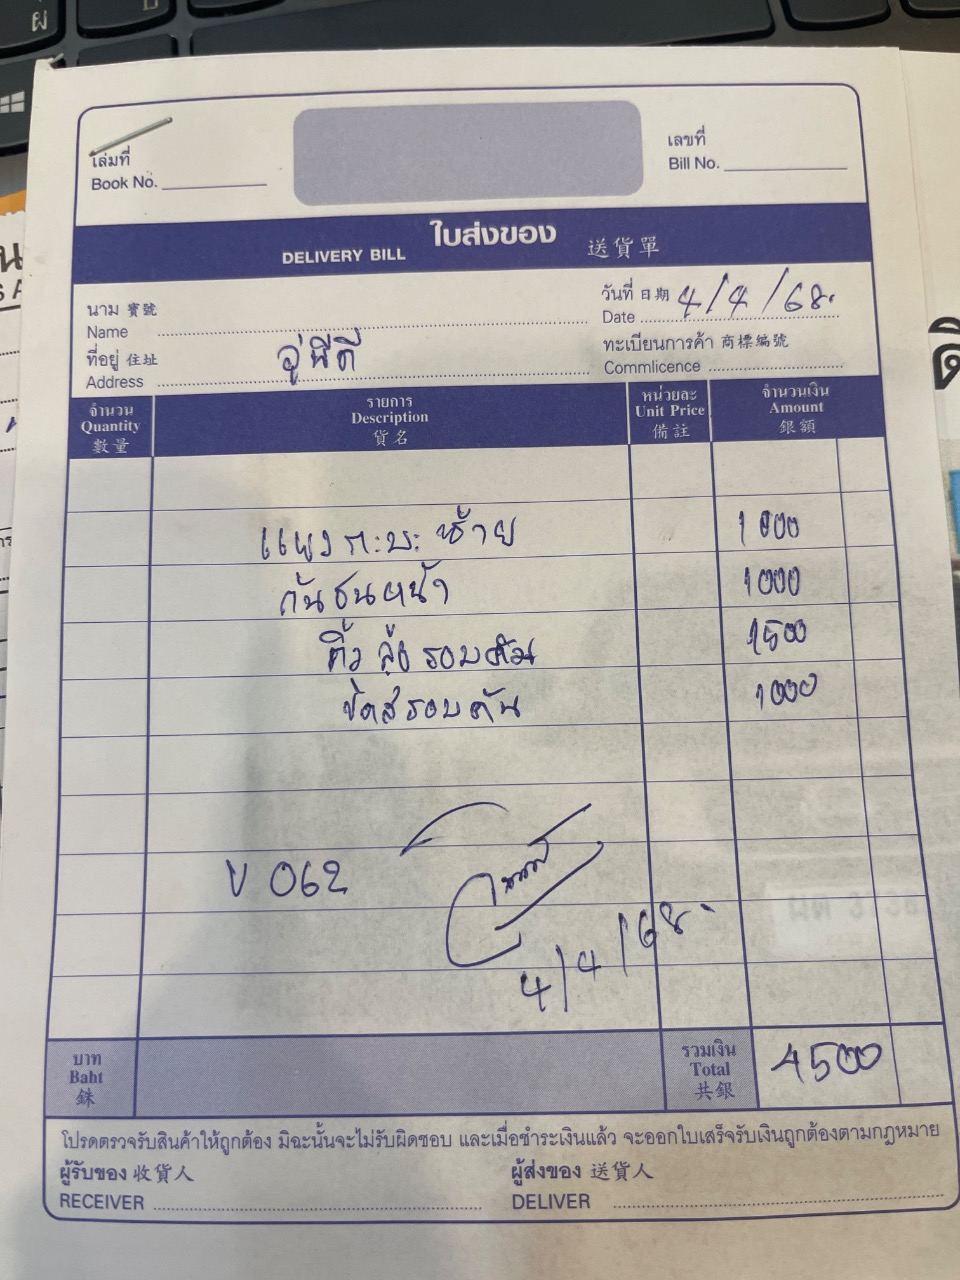 เล่มที่
Book No.
เลขที่
Bill No.
ใบส่งของ
DELIVERY BILL
送貨單
นาม 寶號
Name
วันที่ 日期 4/4/68
Date
ที่อยู่ 住址 อู่พีดี
Address
ทะเบียนการค้า 商標編號
Commlicence
จำนวน
Quantity
數量
รายการ
Description
貨名
หน่วยละ
Unit Price
備註
จำนวนเงิน
Amount
銀額
แผงกะบะซ้าย 1000
กันชนหน้า 1000
คิ้วลุ้งรอบคัน 1500
ขัดสีรอบคัน 1000
V 062
4/4/68
บาท
Baht
銖
รวมเงิน
Total
共銀
4500
โปรดตรวจรับสินค้าให้ถูกต้อง มิฉะนั้นจะไม่รับผิดชอบ และเมื่อชำระเงินแล้ว จะออกใบเสร็จรับเงินถูกต้องตามกฎหมาย
ผู้รับของ 收貨人
RECEIVER
ผู้ส่งของ 送貨人
DELIVER